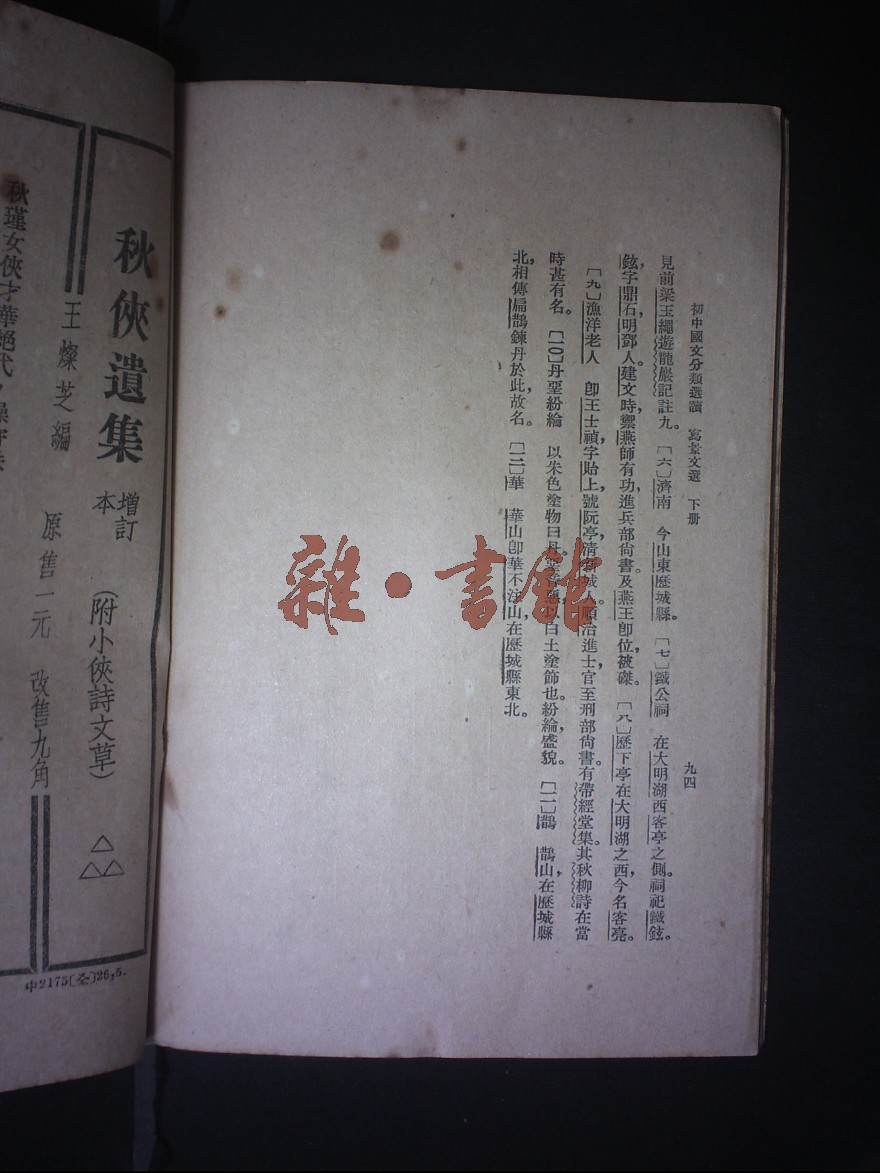 初中國文分類選讀　寫景文選　下册
九四
見前梁玉繩遊龍巖記註九。〔六〕濟南　今山東歷城縣。〔七〕鐵公祠　在大明湖西客亭之側。祠祀鐵鉉。
鉉字鼎石，明鄧人。建文時，禦燕師有功，進兵部尙書。及燕王卽位，被磔。〔八〕歷下亭　在大明湖之西，今名客亮。
〔九〕漁洋老人　卽王士禎，字貽上，號阮亭，淸新城人。順治進士，官至刑部尙書。有帶經堂集。其秋柳詩在當
時甚有名。〔一〇〕丹堊紛綸　以朱色塗物曰丹。堊音惡，以白土塗飾也。紛綸，盛貌。〔一一〕鵲　鵲山在歷城縣
北，相傳扁鵲鍊丹於此，故名。〔一二〕華　華山卽華不注山，在歷城縣東北。
雜·書館
秋俠遺集 增訂本（附小俠詩文草）
王燦芝編　原售一元　改售九角
秋瑾女俠才華絕代，
中2175〔仝〕26,5.